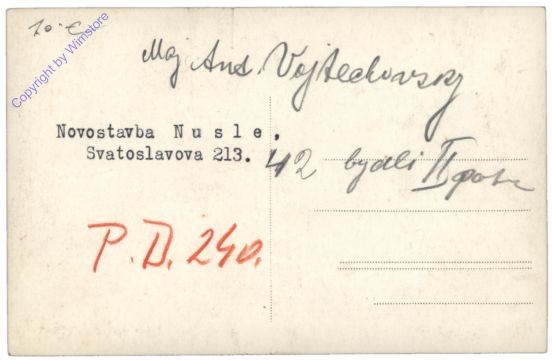 10.-
Copyright by Wimstore
Maj Ant. Vojtechovsky
Novostavba Nusle,
Svatoslavova 213.
42 bydlí II
P.D. 240.